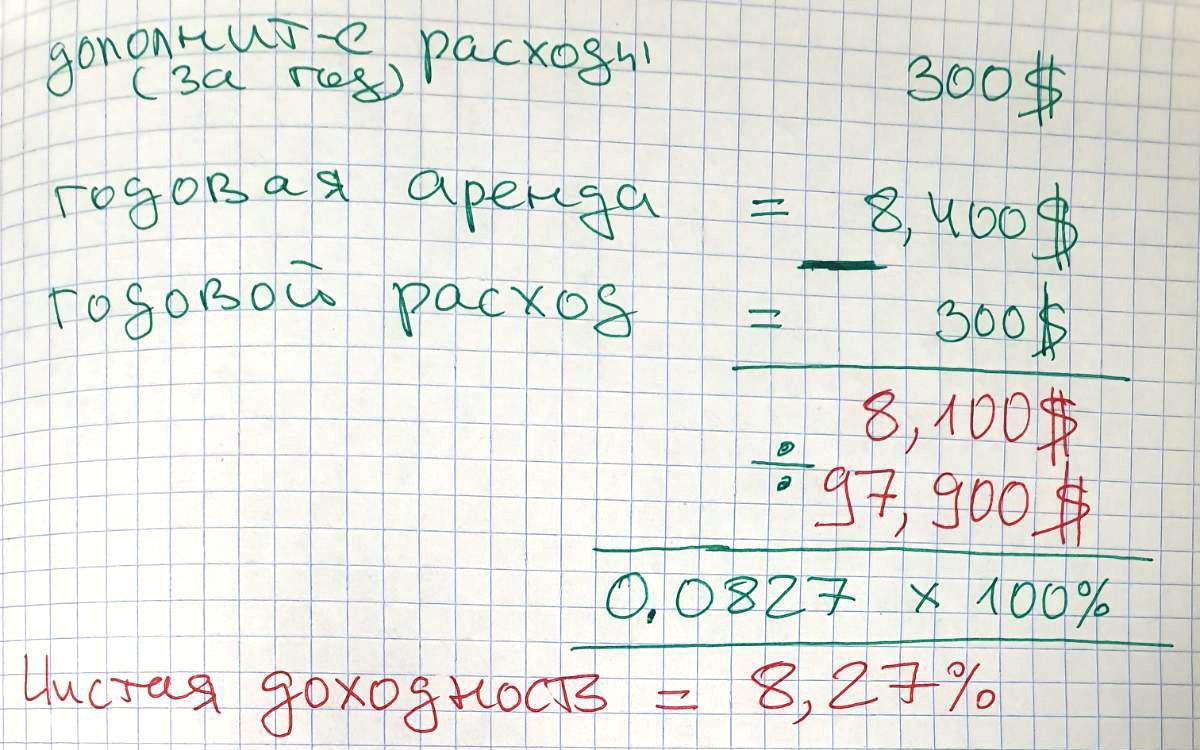 дополнит-е расходы 300$
(за год)
годовая аренда = 8,400$
—
годовой расход = 300$
8,100$
÷ 97,900$
0,0827 × 100%
Чистая доходность = 8,27%